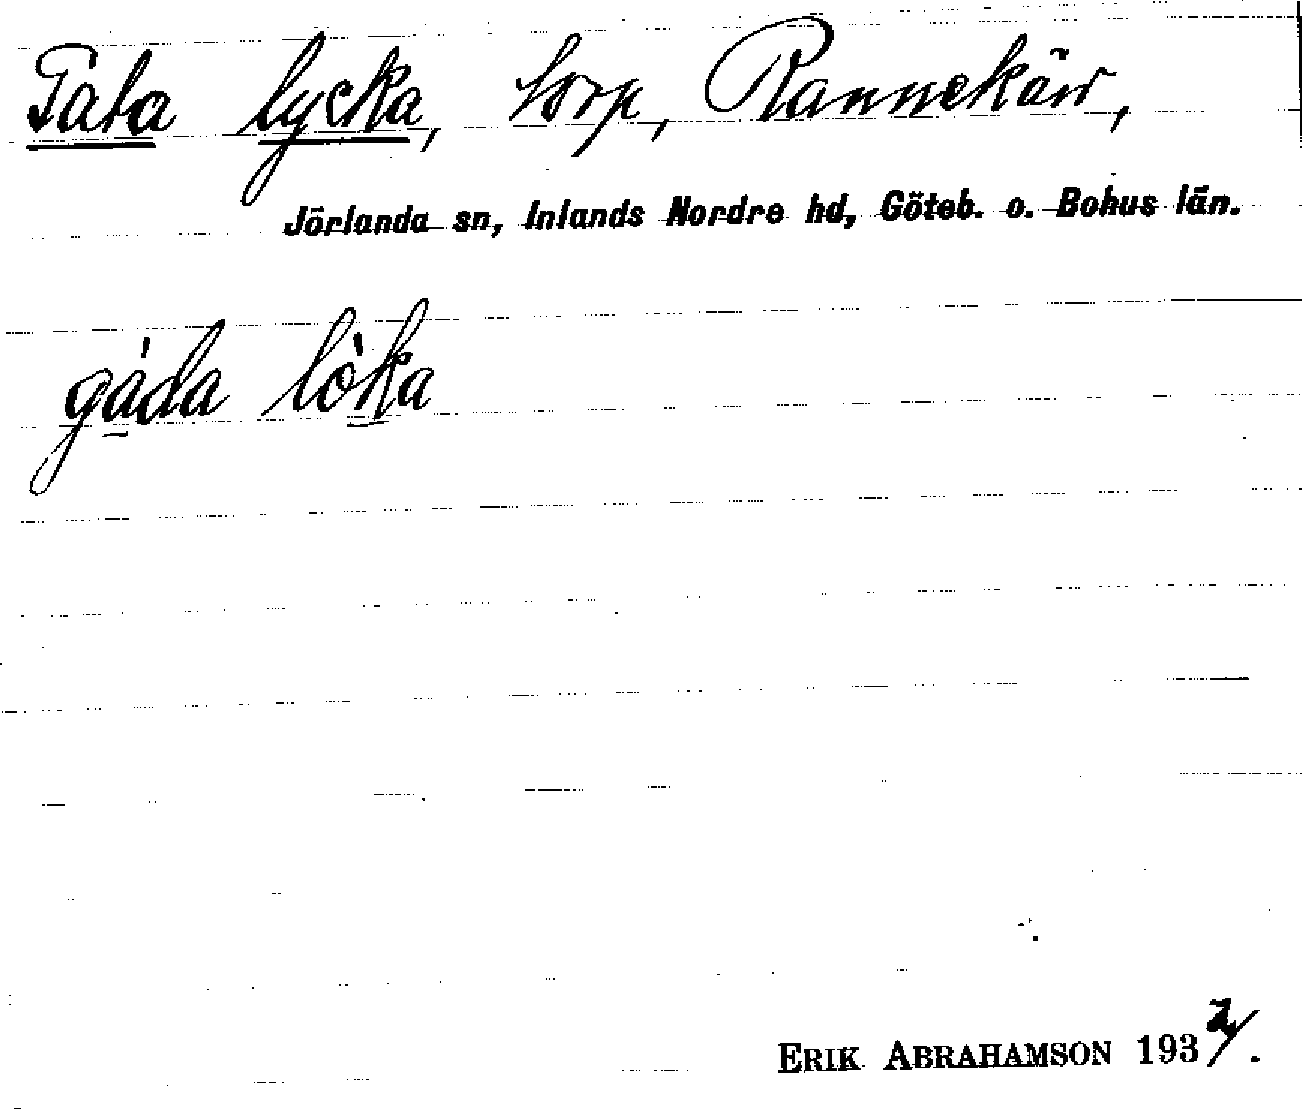 Gata lycka, torp, Rannekärr,
Jörlanda sn, Inlands Nordre hd, Göteb. o. Bohus län.
gáda lòka
ERIK ABRAHAMSON 1932/.